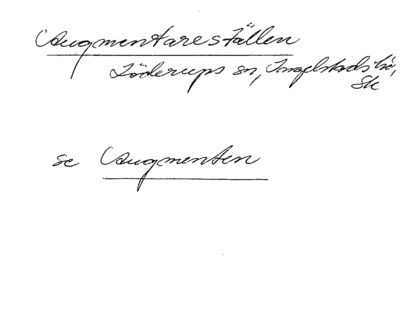 Augmentareställen
Löderups sn, Ingelstads hd,
Sk
se Augmenten